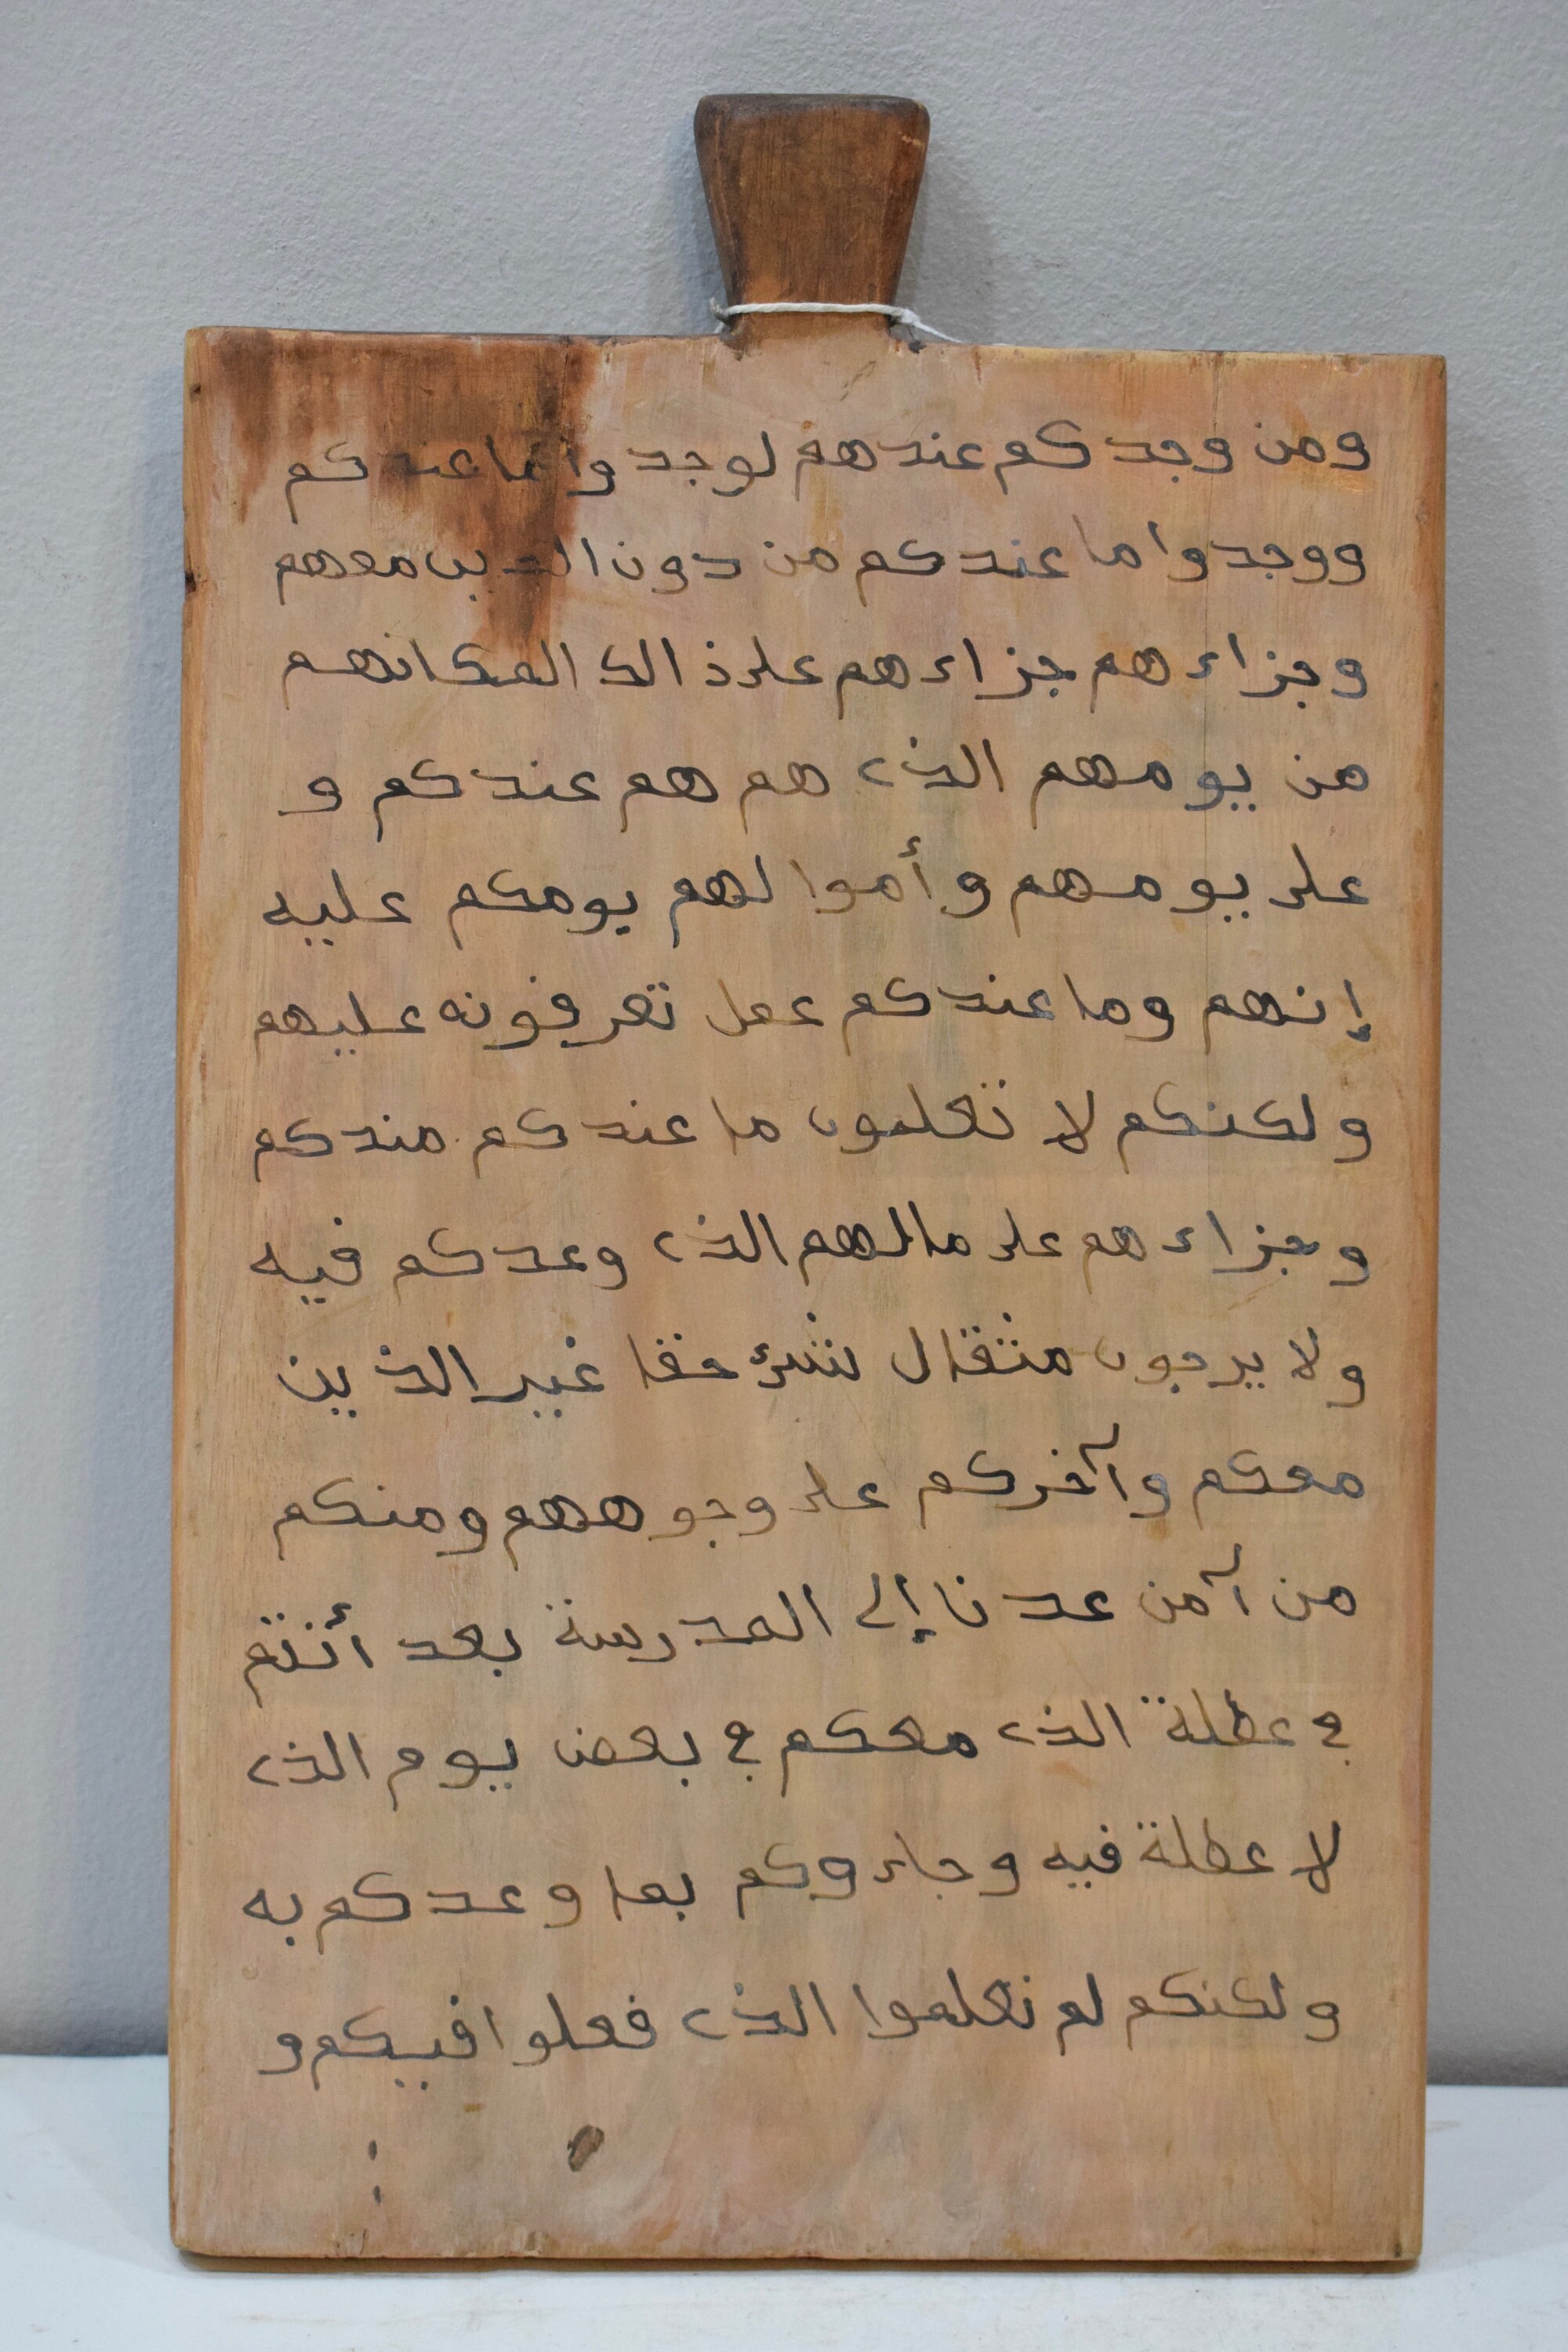 ومن وجدكم عندهم لوجدوا ما عندكم
ووجدوا ما عندكم من دون الذين معهم
وجزاءهم جزاءهم على ذالك المكانهم
من يومهم الذي هم هم عندكم و
على يومهم وأموالهم يومكم عليه
إنهم وما عندكم عمل تعرفونه عليهم
ولكنكم لا تعلمون ما عندكم مندكم
وجزاءهم على مالهم الذي وعدكم فيه
ولا يرجون مثقال شئ حقا غير الذين
معكم وآخركم على وجوههم ومنكم
من آمن عدنا إلى المدرسة بعد أنتم
في عطلة الذي معكم في بعض يوم الذي
لا عطلة فيه وجاءوكم بما وعدكم به
ولكنكم لم تعلموا الذي فعلوا فيكم و